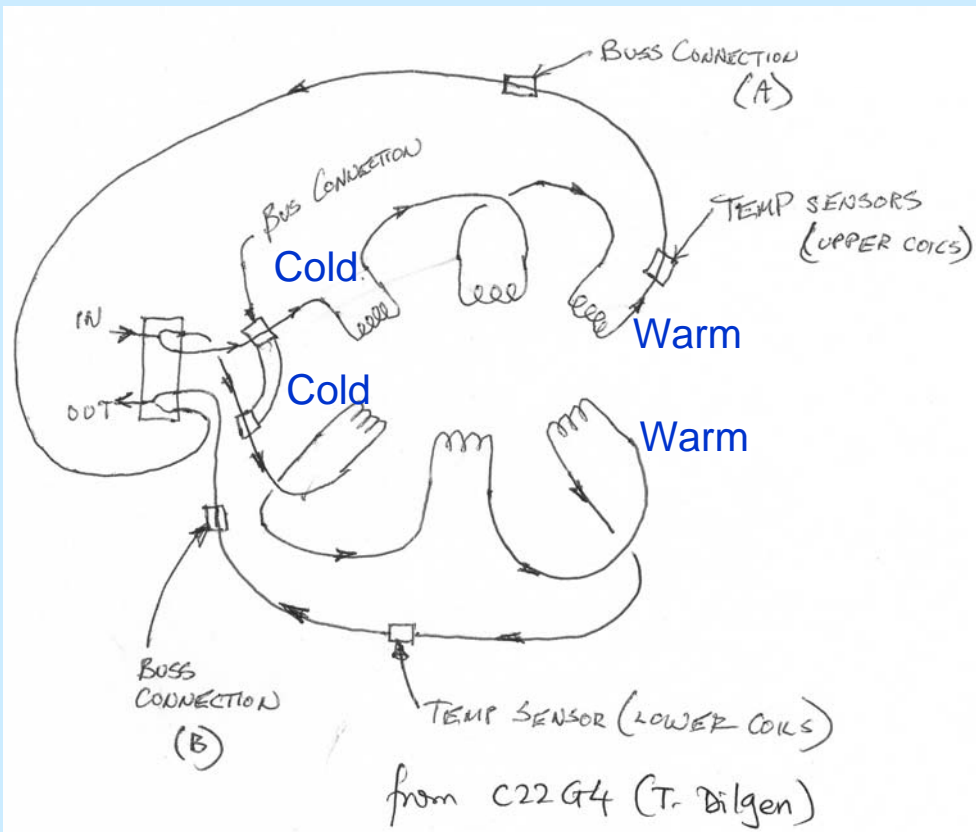 BUSS CONNECTION
(A)
BUS CONNECTION
TEMP SENSORS
(UPPER COILS)
Cold
IN
Warm
Cold
OUT
Warm
BUSS
CONNECTION
(B)
TEMP SENSOR (LOWER COILS)
from C22G4 (T. Dilgen)